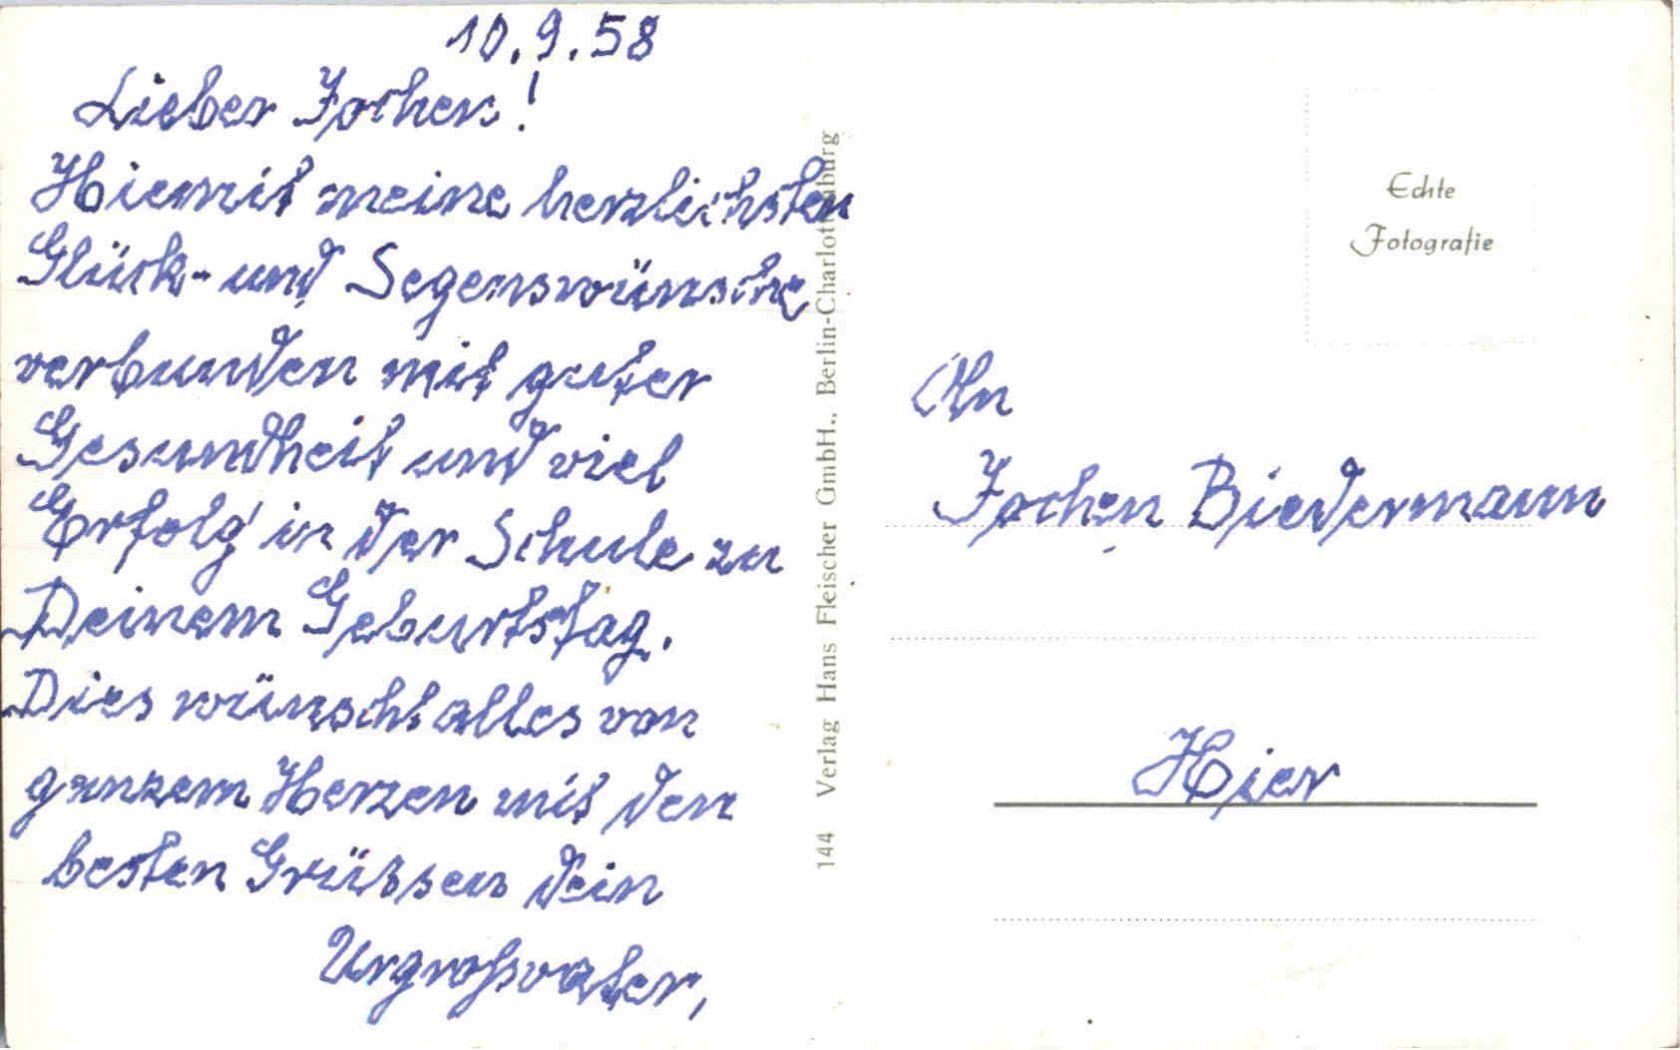 10.9.58
Lieber Jochen!
Hiemit meine herzlichsten
Glück- und Segenswünsche
verbunden mit guter
Gesundheit und viel
Erfolg in der Schule zu
Deinem Geburtstag.
Dies wünscht alles von
ganzem Herzen mit den
besten Grüssen Dein
Urgroßvater,
144 Verlag Hans Fleischer GmbH., Berlin-Charlottenburg
Echte
Fotografie
An
Jochen Biedermann
Hier